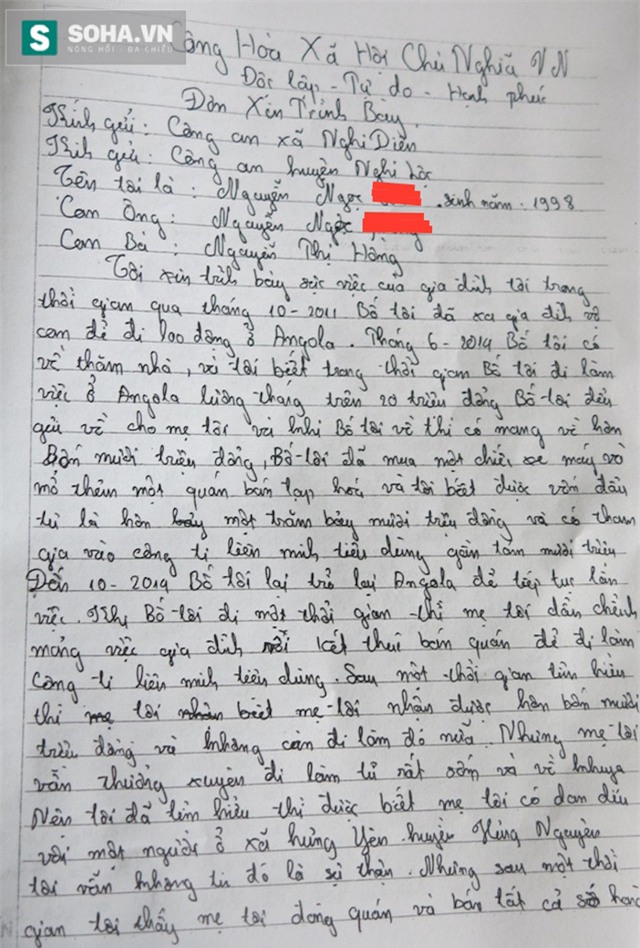 SOHA.VN
NÓNG HỔI - ĐA CHIỀU
Cộng Hòa Xã Hội Chủ Nghĩa VN
Độc lập - Tự do - Hạnh phúc
Đơn Xin Trình Bày
Kính gửi : Công an xã Nghi Diên
Kính gửi : Công an huyện Nghi Lộc
Tên tôi là : Nguyễn Ngọc . sinh năm : 1998
Con Ông : Nguyễn Ngọc
Con Bà : Nguyễn Thị Hồng
Tôi xin trình bày sực việc của gia đình tôi trong
thời gian qua tháng 10 - 2011 Bố tôi đã xa gia đình vợ
con để đi lao động ở Angola . Tháng 6 - 2014 Bố tôi có
về thăm nhà , và tôi biết trong thời gian Bố tôi đi làm
việc ở Angola lương tháng trên 20 triệu đồng Bố tôi đều
gửi về cho mẹ tôi và khi Bố tôi về thì có mang về hơn
Bốn mươi triệu đồng , Bố tôi đã mua một chiếc xe máy và
mở thêm một quán bán tạp hoá và tôi biết được vốn đầu
tư là hơn một trăm bảy mươi triệu đồng và có tham
gia vào công ti liên minh tiêu dùng gần tám mươi triệu
Đến 10 - 2014 Bố tôi lại trở lại Angola để tiếp tục làm
việc . Khi Bố tôi đi một thời gian thì mẹ tôi dần chểnh
mảng việc gia đình rồi kết thúc bán quán để đi làm
Công ti liên minh tiêu dùng . Sau một thời gian tìm hiểu
thì tôi biết mẹ tôi nhận được hơn bốn mươi
triệu đồng và không còn đi làm đó nữa . Nhưng mẹ tôi
vẫn thường xuyên đi làm từ rất sớm và về khuya
Nên tôi đã tìm hiểu thì được biết mẹ tôi có dan díu
với một người ở xã hưng Yên huyện Hưng Nguyên
tôi vẫn không tin đó là sự thận . Nhưng sau một thời
gian tôi thấy mẹ tôi đóng quán và bán tất cả số hàng